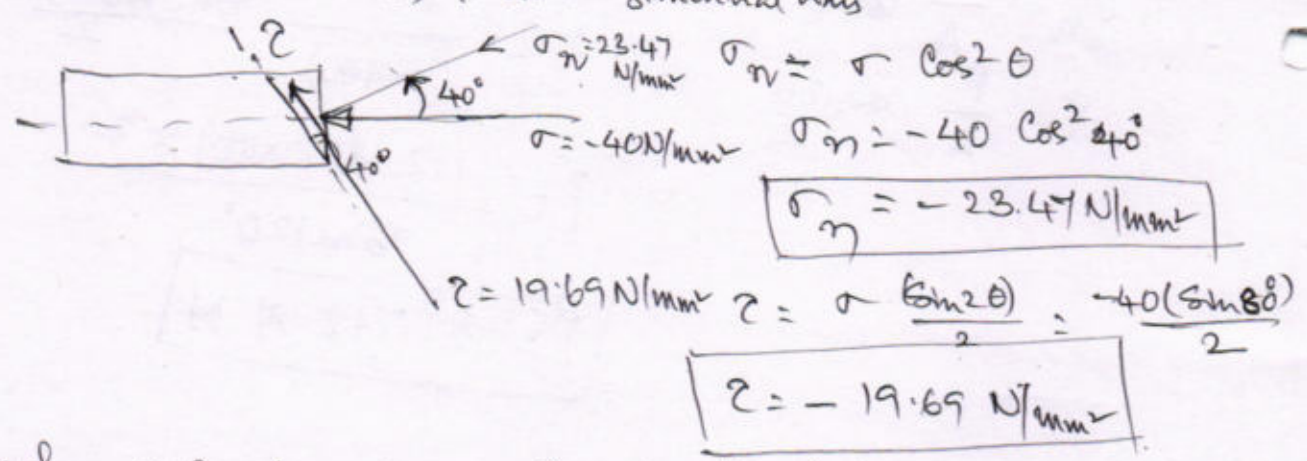 τ
σn = 23.47 N/mm² σn = σ Cos² θ
40°
σ = -40N/mm² σn = -40 Cos² 40°
40°
σn = - 23.47 N/mm²
τ = 19.69 N/mm² τ = σ (Sin2θ)/2 = -40(Sin80°)/2
τ = - 19.69 N/mm²